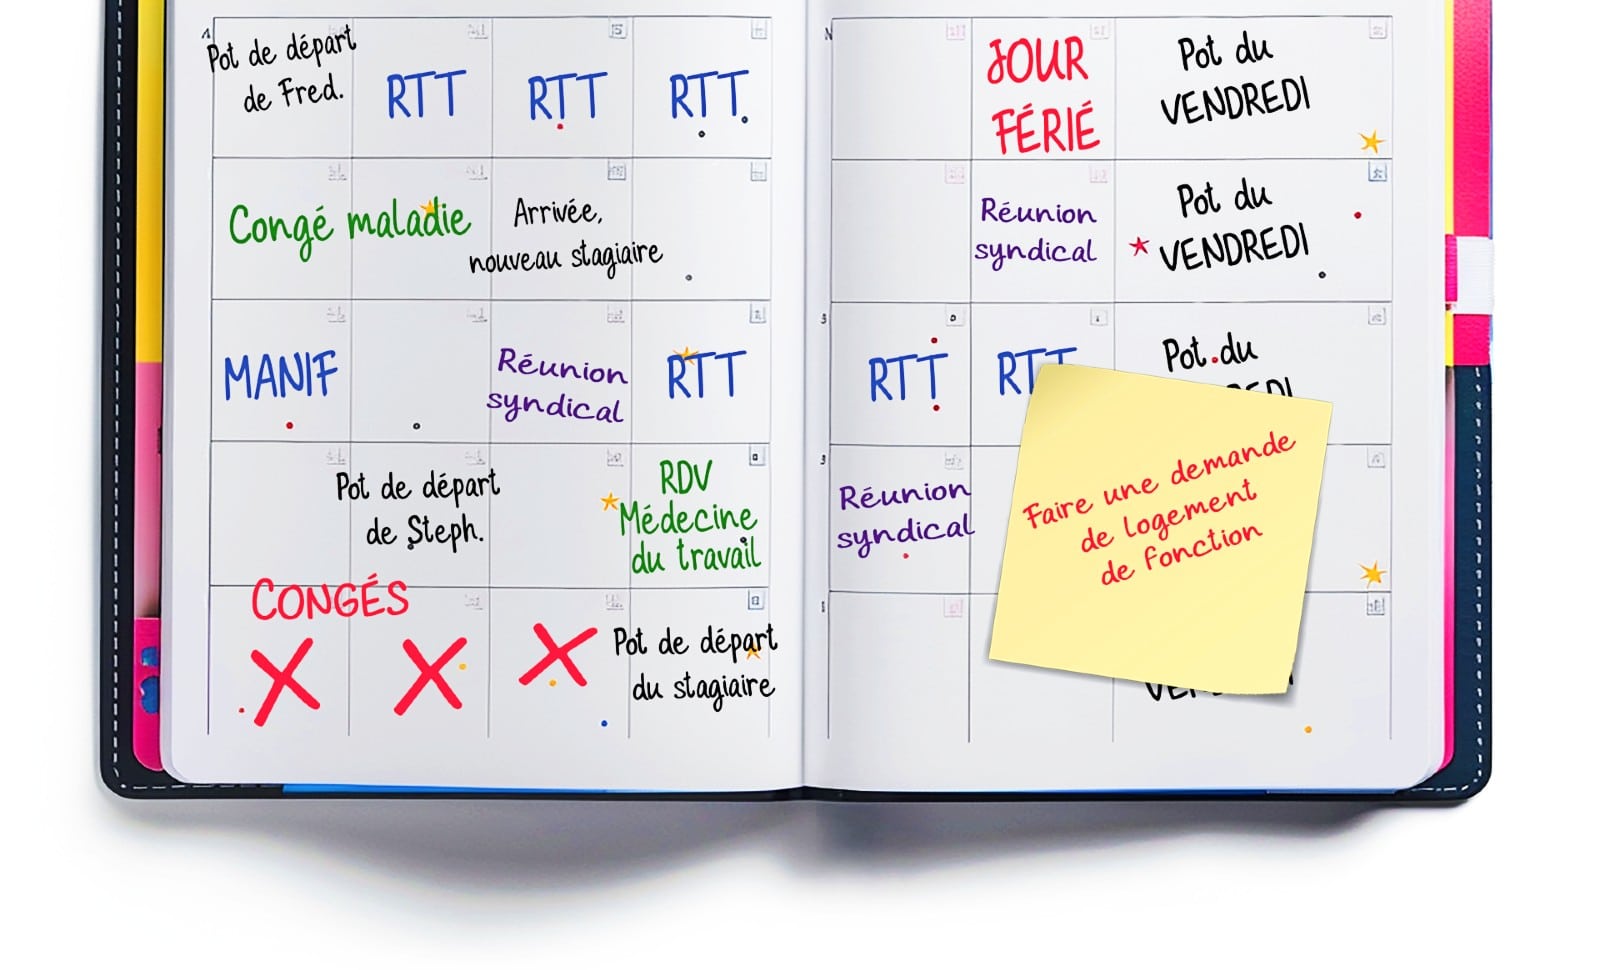 Pot de départ
de Fred.
RTT
RTT
RTT
JOUR
FÉRIÉ
Pot du
VENDREDI
Congé maladie
Arrivée,
nouveau stagiaire
Réunion
syndical
Pot du
VENDREDI
MANIF
Réunion
syndical
RTT
RTT
RTT
Pot du
Pot de départ
de Steph.
RDV
Médecine
du travail
Réunion
syndical
Faire une demande
de logement
de fonction
CONGÉS
Pot de départ
du stagiaire